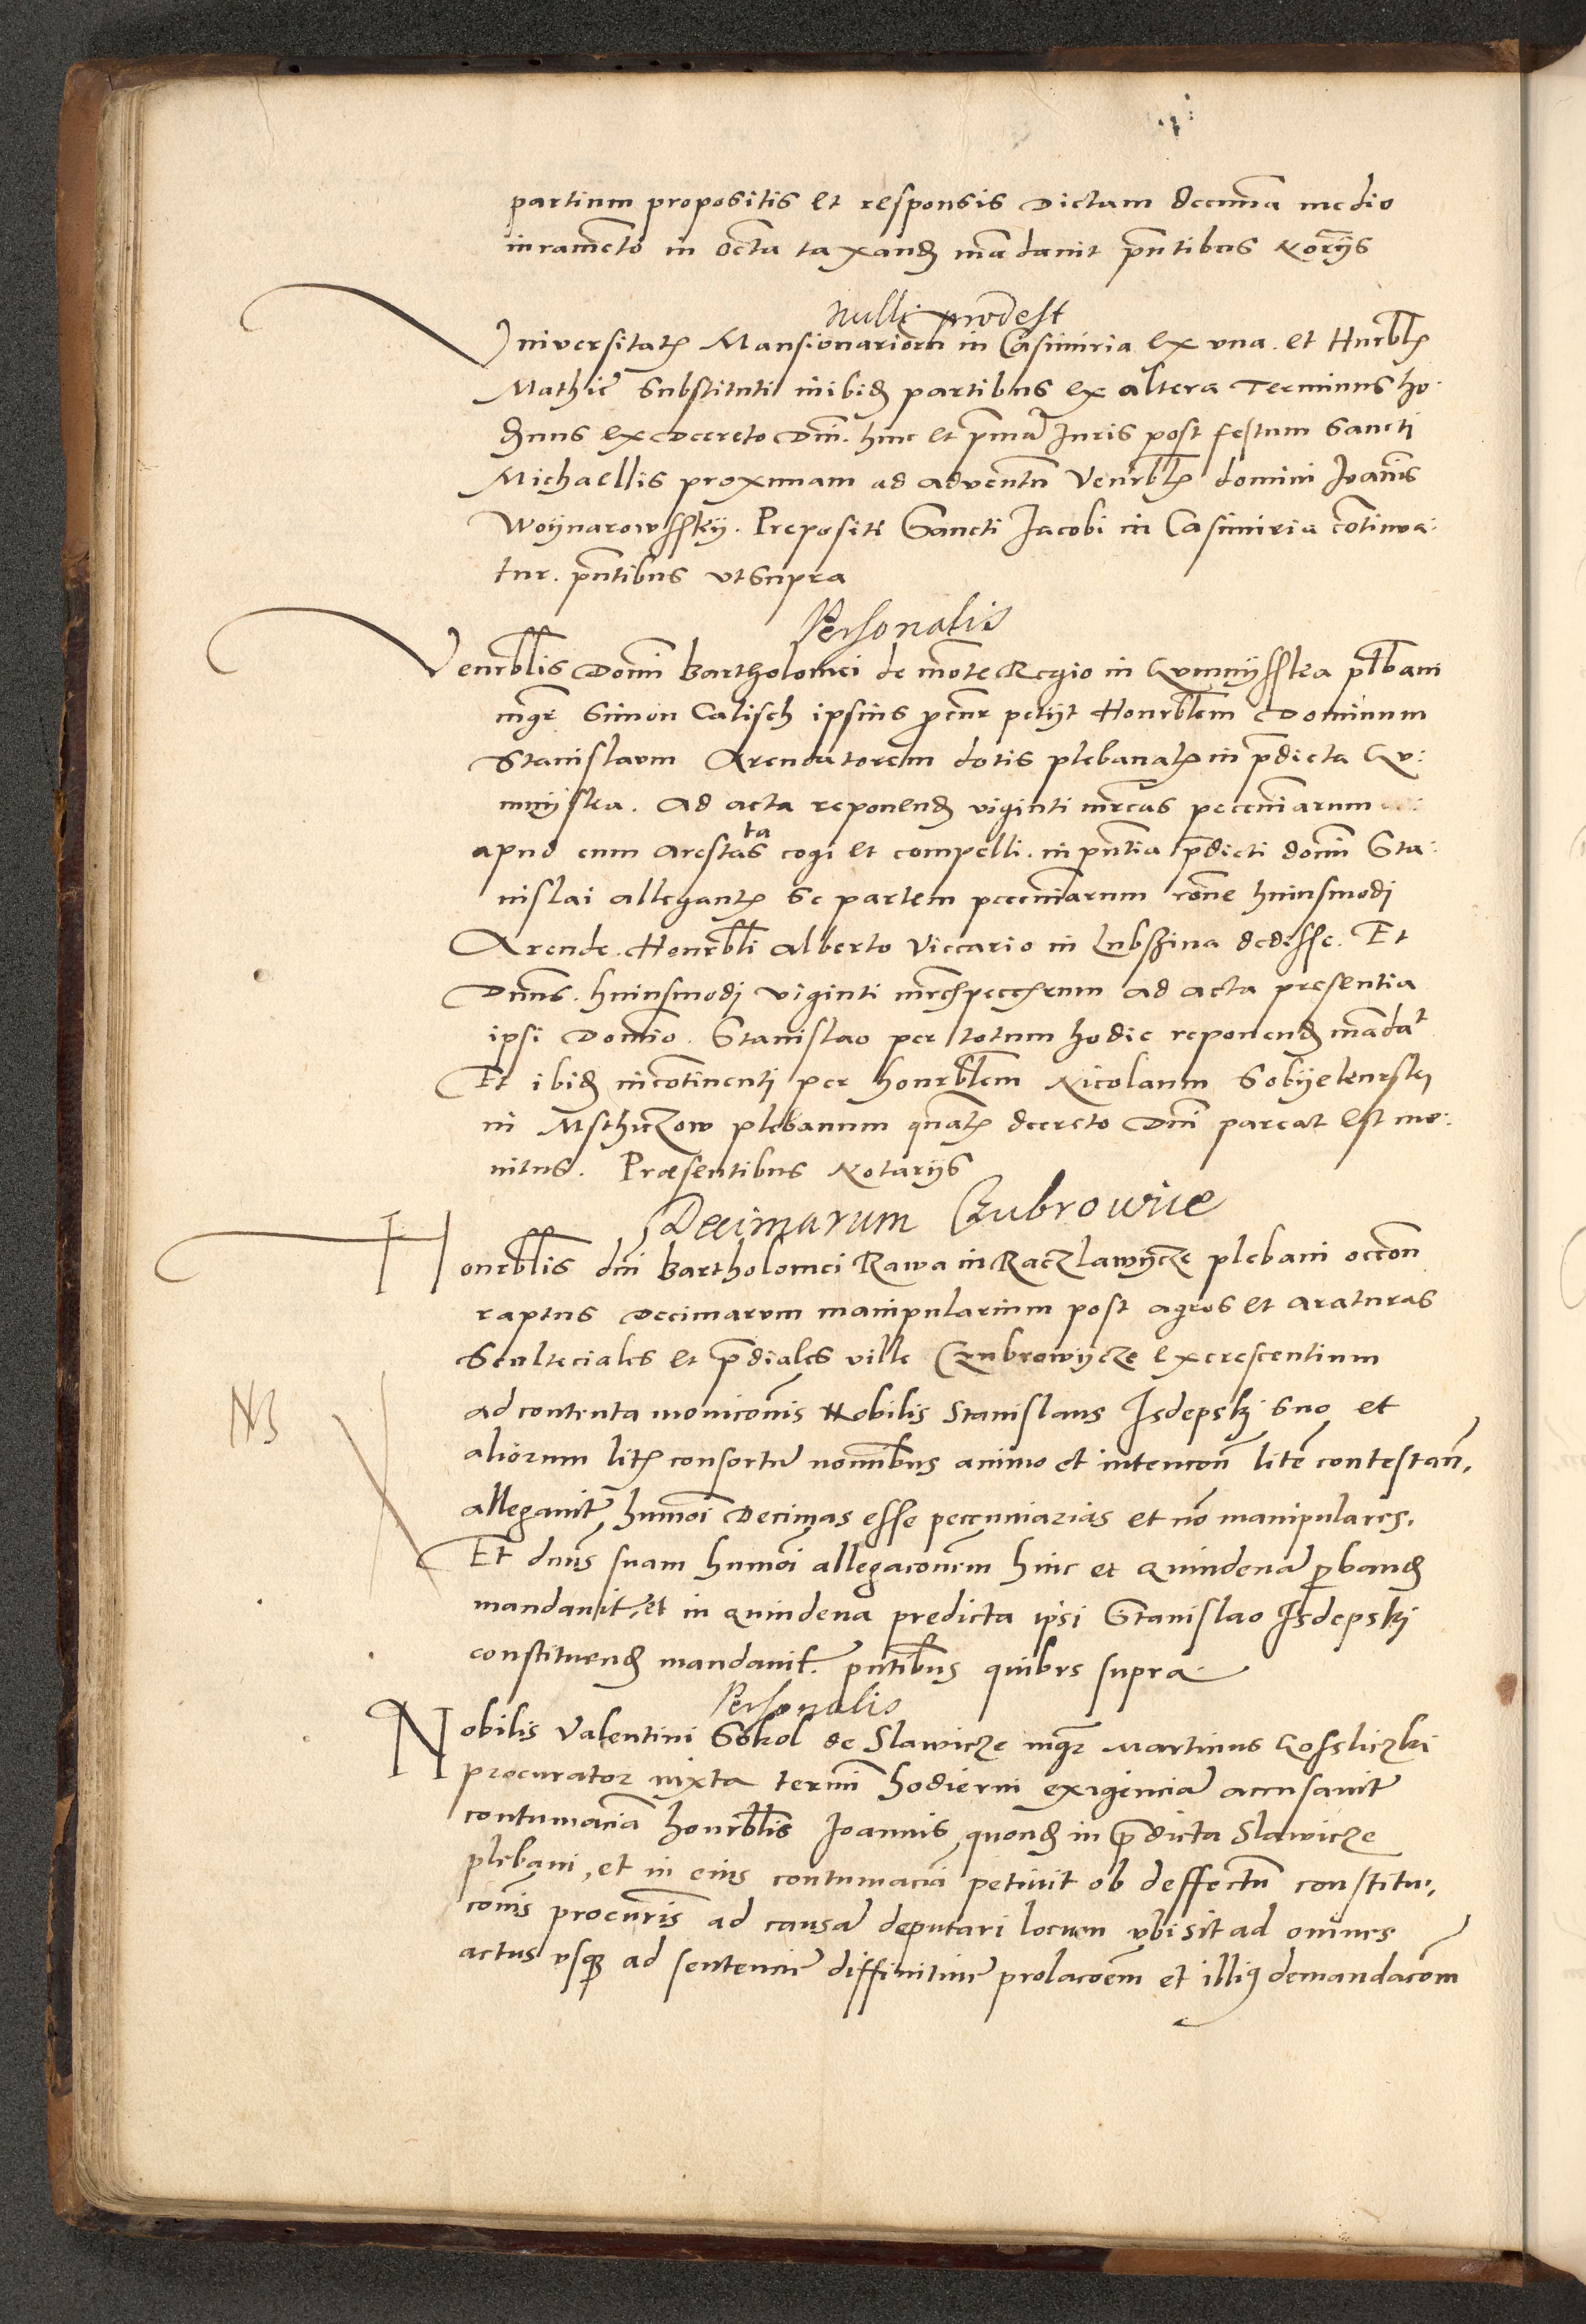 partium propositis et responsis dictam decimā medio
iuramēto in octa taxanḍ mādauit pn̄tibus Noriis
Nulli prodest
Vniversitatꝭ Mansionariorū in Casimiria ex vna. et Hnrblꝭ
Mathie Substituti inibiḍ partibus ex altera Terminus ho:
dernus ex decreto Dni. hinc et primā Iuris post festum Sancti
Michaellis proximam ad adventū Venrblꝭ domini Joānis
Woynarowssky. Prepositi Sancti Jacobi in Casimiria cōtinua:
tur. pn̄tibus vt supra
Personalis
Venrblis Domī Bartholomei de mōte Regio in plbani
mgr Simon Calisch ipsius procur petiit Honrblem Dominum
Stanislaum Arendatorem dotis plebanatꝭ in p̄dicta
Ad acta reponenḍ viginti mrcas pecuniarum
apud eum arestatas cogi et compelli. in pn̄tia p̄dicti domī Sta:
nislai allegantꝭ se partem pecuniarum rōne huiusmodi
Arende. Honrbli Alberto Viccario in Lubszina dedisse. Et
Dnns. huiusmodi viginti mrcas ad acta presentia
ipsi Domīo. Stanislao per totum hodie reponenḍ mādat
Et ibiḍ incōtinenti per honrblem Nicolaum
in plebanum quatꝭ decreto Dni pareat est mo:
nitus. Præsentibus Notariis
Decimarum Czubrowice
Honrblis dni Bartholomei Rawa in Raczlawycze plebani occōn
raptus decimarum manipularium post agros et araturas
Sculteciales et p̄diales ville Czubrowycze excrescentium
NB
ad contenta monicōnis Nobilis Stanislaus Isdepskj suo et
aliorum litꝭ consortiū nomībus animo et intencōn litē contestan̄,
allegauit, humōi Decimas esse peccuniarias et nō manipulares.
Et dnns suam humōi allegacōnem hinc et quindenā ꝓbanḍ
mandauit, et in quindena predicta ipsi Stanislao Isdepskj
constituenḍ mandauit. pntibus quibus supra
Personalis
Nobilis Valentini Sokol de Slawicze mgr Martinus Gosliczki
procurator iuxta termī hodierni exigenciā accusauit
contumaciā honrblis Joannis quonḍ in p̄dicta Slawicze
plebani, et in eius contumaciā petiuit ob deffectū constitu,
cōnis procuris ad causā deputari locum vbi sit ad omnes
actus vsqꝫ ad sentencie diffinitiue prolacōem et illius demandacōm